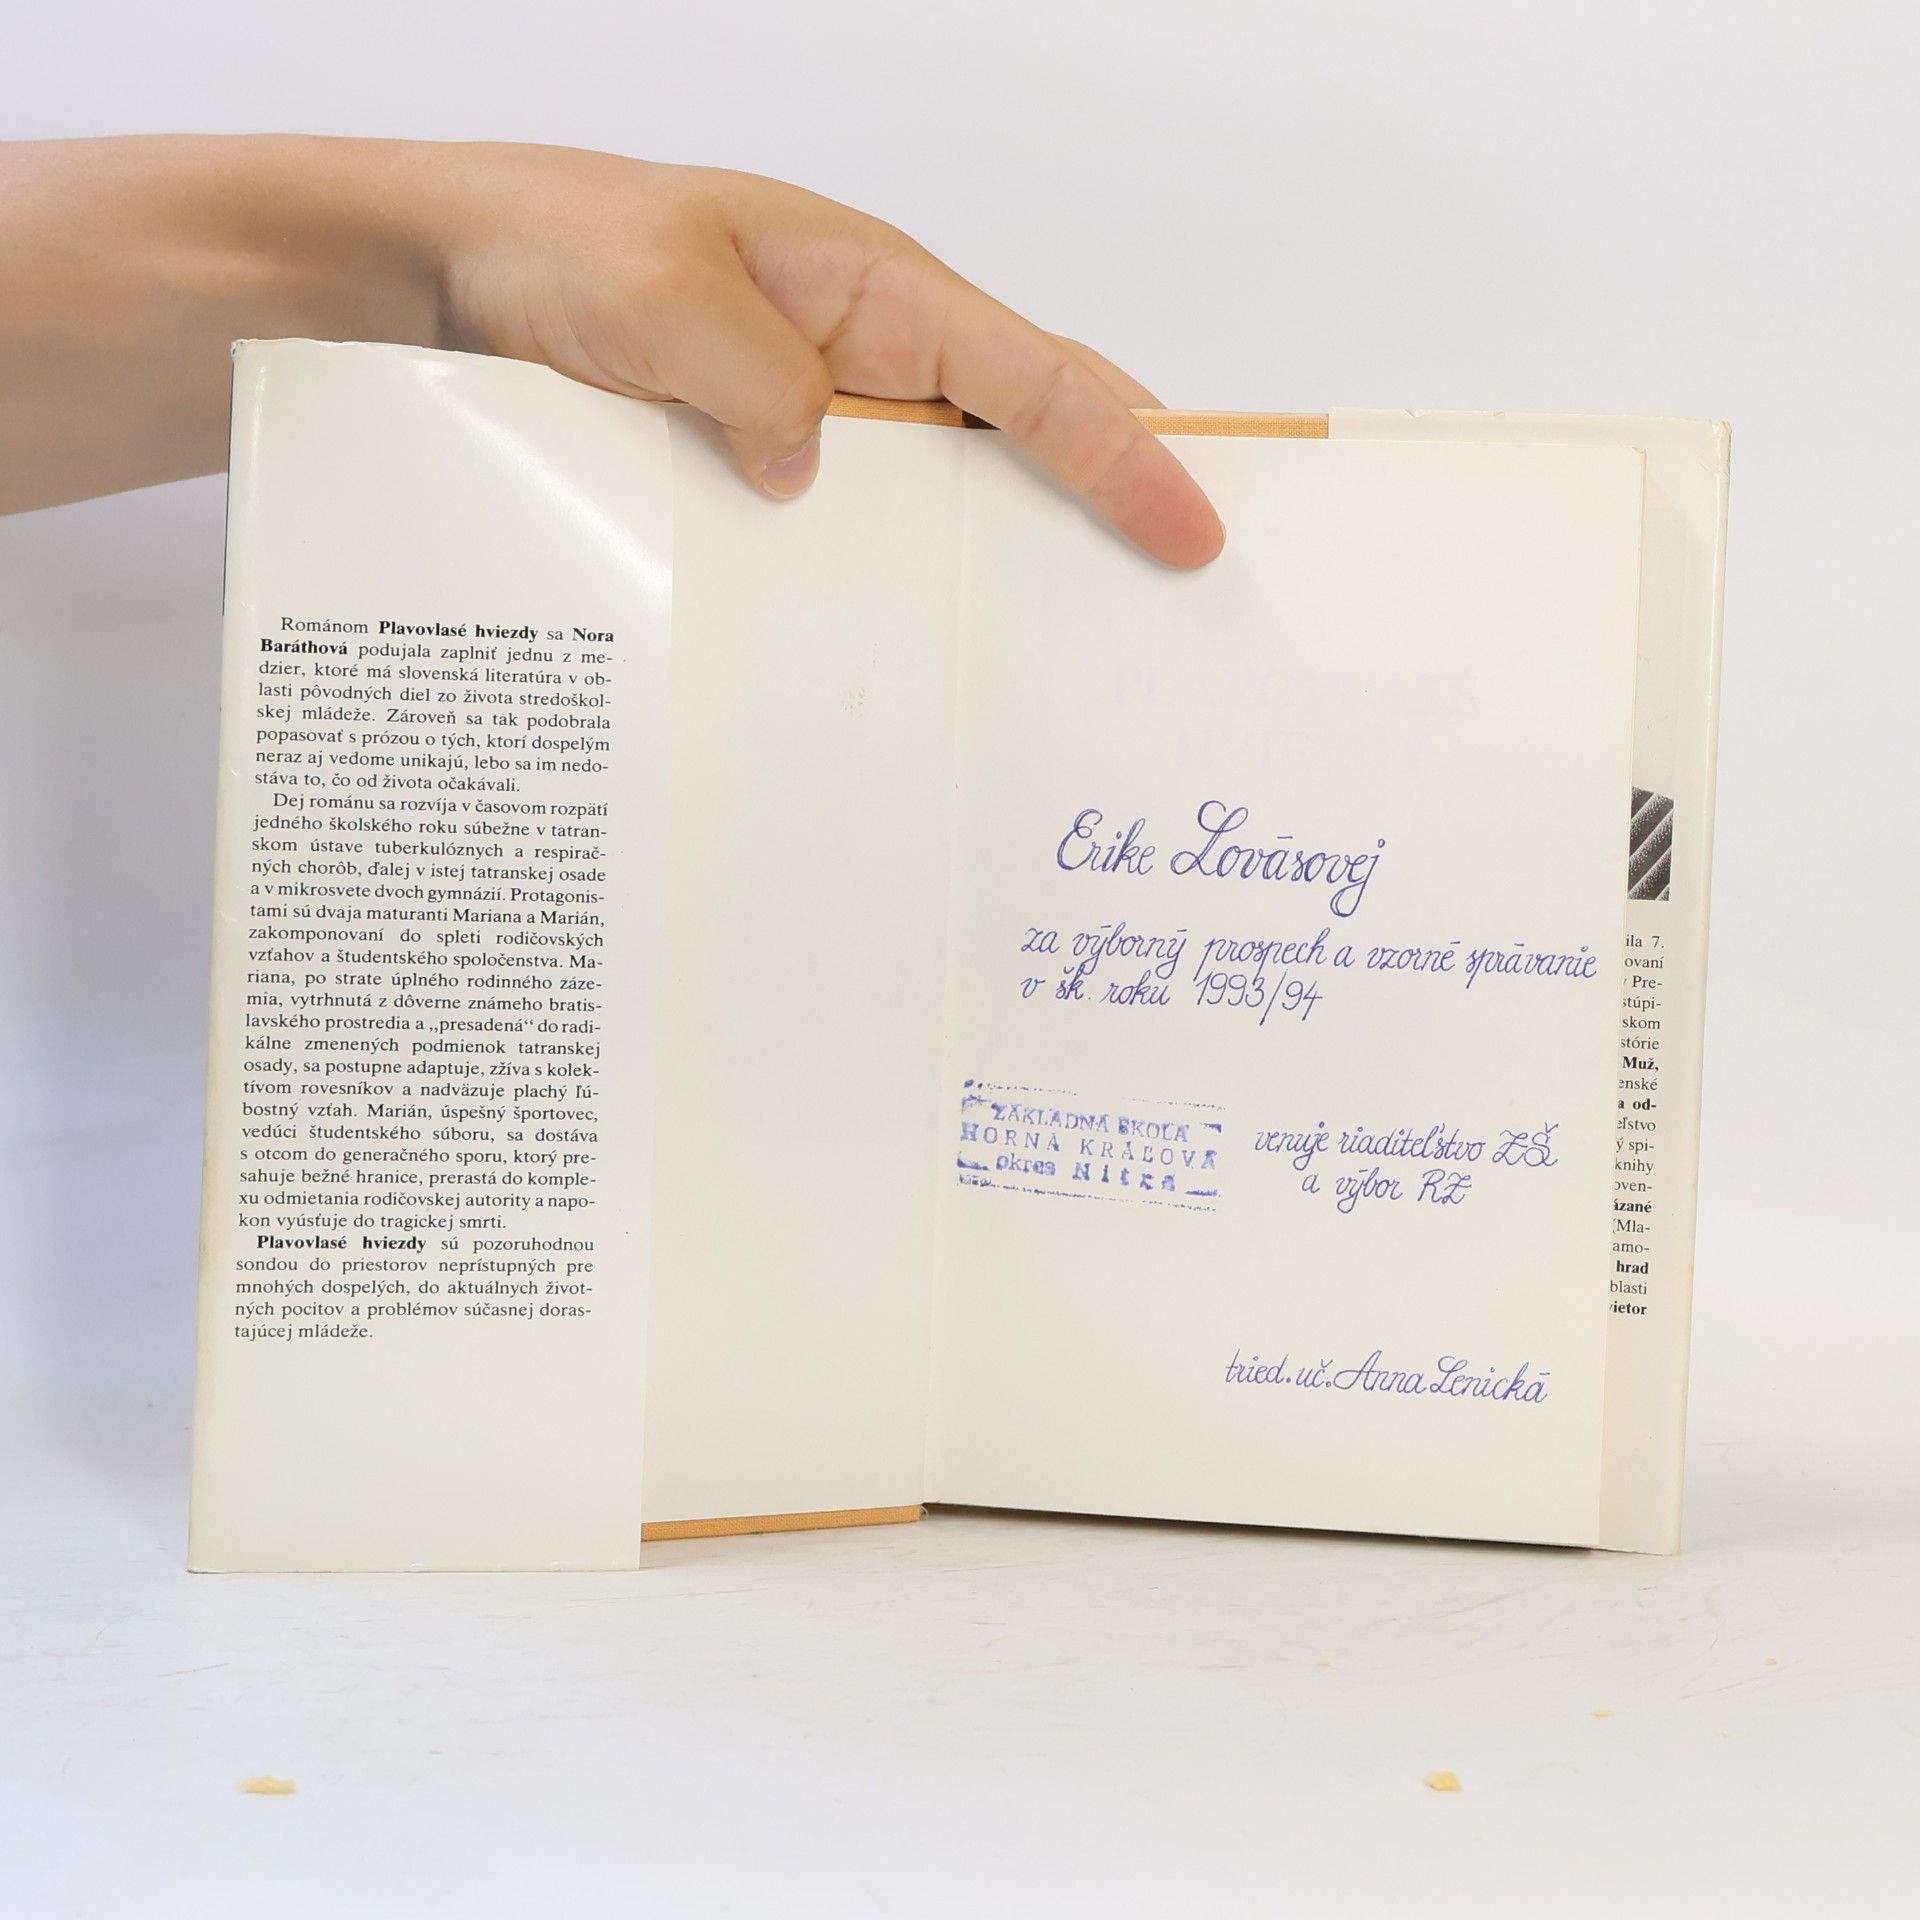 Románom Plavovlasé hviezdy sa Nora
Baráthová podujala zaplniť jednu z me-
dzier, ktoré má slovenská literatúra v ob-
lasti pôvodných diel zo života stredoškol-
skej mládeže. Zároveň sa tak podobrala
popasovať s prózou o tých, ktorí dospelým
neraz aj vedome unikajú, lebo sa im nedo-
stáva to, čo od života očakávali.
Dej románu sa rozvíja v časovom rozpätí
jedného školského roku súbežne v tatran-
skom ústave tuberkulóznych a respirač-
ných chorôb, ďalej v istej tatranskej osade
a v mikrosvete dvoch gymnázií. Protagonis-
tami sú dvaja maturanti Mariana a Marián,
zakomponovaní do spleti rodičovských
vzťahov a študentského spoločenstva. Ma-
riana, po strate úplného rodinného záze-
mia, vytrhnutá z dôverne známeho bratis-
lavského prostredia a „presadená“ do radi-
kálne zmenených podmienok tatranskej
osady, sa postupne adaptuje, zžíva s kolek-
tívom rovesníkov a nadväzuje plachý ľú-
bostný vzťah. Marián, úspešný športovec,
vedúci študentského súboru, sa dostáva
s otcom do generačného sporu, ktorý pre-
sahuje bežné hranice, prerastá do komple-
xu odmietania rodičovskej autority a napo-
kon vyúsťuje do tragickej smrti.
Plavovlasé hviezdy sú pozoruhodnou
sondou do priestorov neprístupných pre
mnohých dospelých, do aktuálnych život-
ných pocitov a problémov súčasnej doras-
tajúcej mládeže.
Erike Lovásovej
za výborný prospech a vzorné správanie
v šk. roku 1993/94
ZÁKLADNÁ ŠKOLA
HORNÁ KRÁĽOVÁ
okres Nitra
venuje riaditeľstvo ZŠ
a výbor RZ
tried. uč. Anna Lenická
ila 7.
ovaní
Pre-
stúpi-
skom
stórie
Muž,
enské
a od-
eľstvo
ý spi-
knihy
oven-
ázané
(Mla-
amo-
hrad
blasti
vietor